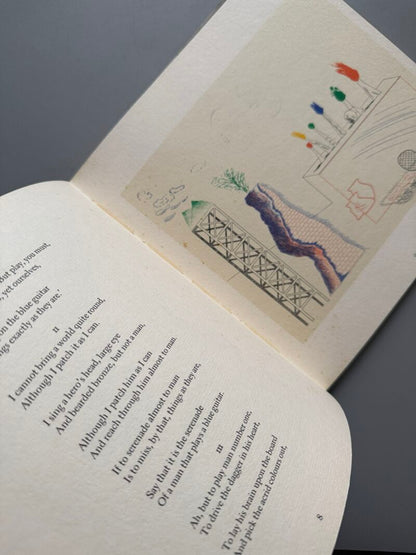 But play, you must,
yet ourselves,
on the blue guitar
exactly as they are.'
II
I cannot bring a world quite round,
Although I patch it as I can.
I sing a hero's head, large eye
And bearded bronze, but not a man,
Although I patch him as I can
And reach through him almost to man.
If to serenade almost to man
Is to miss, by that, things as they are,
Say that it is the serenade
Of a man that plays a blue guitar.
III
Ah, but to play man number one,
To drive the dagger in his heart,
To lay his brain upon the board
And pick the acrid colours out,
8